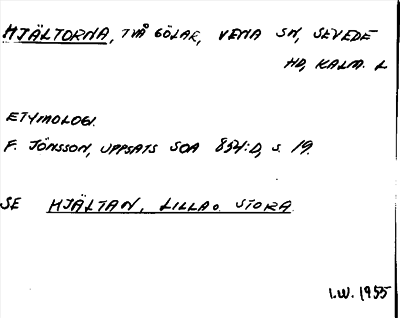 HJÄLTORNA, TVÅ GÖLAR, VENA SN, SEVEDE
HD, KALM. L
ETYMOLOGI.
F. JÖNSSON, UPPSATS SOA 854:D, s. 19.
SE HJÄLTAN, LILLA o. STORA
I.W. 1955